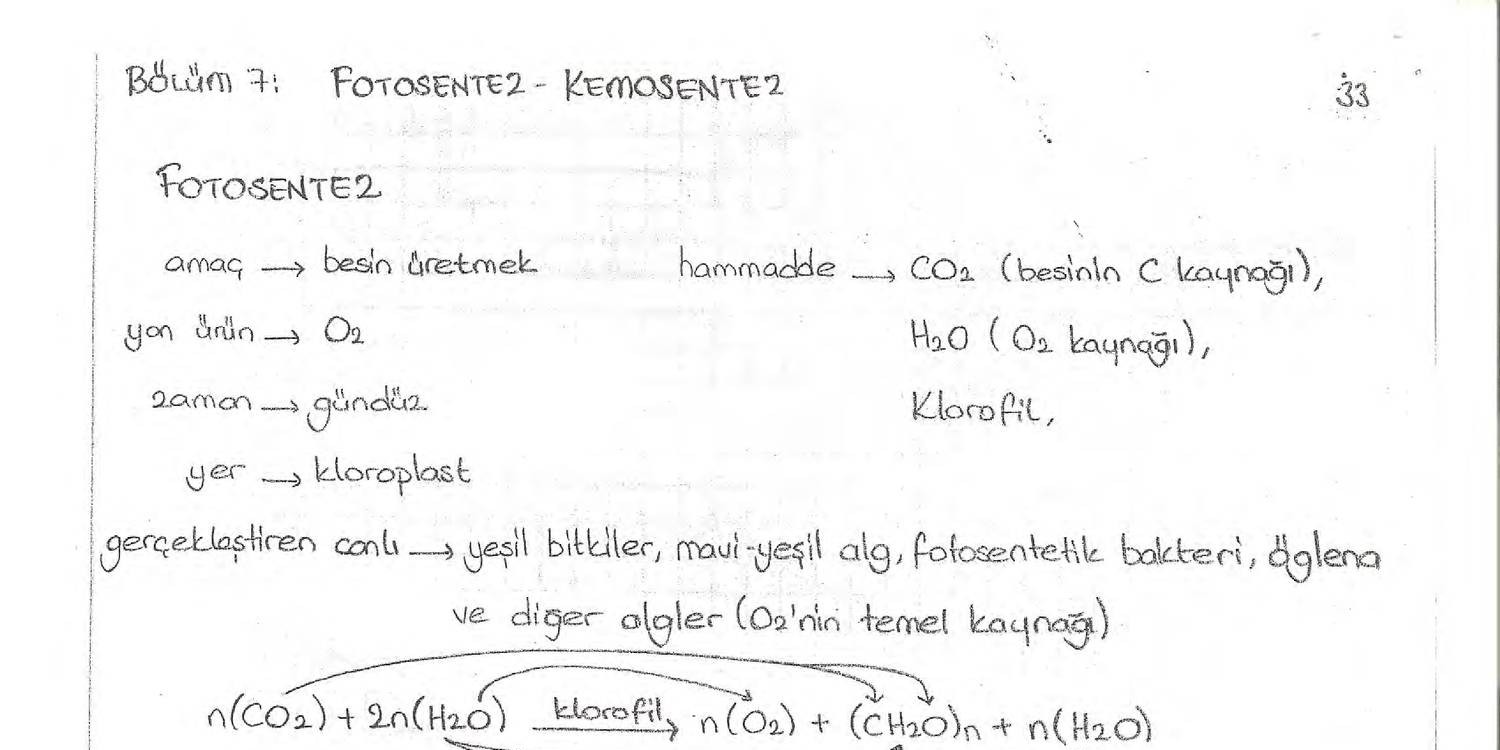 BÖLÜM 7: FOTOSENTEZ - KEMOSENTEZ 33
FOTOSENTEZ
amaç → besin üretmek hammadde → CO₂ (besinin C kaynağı),
yan ürün → O₂ H₂O (O₂ kaynağı),
zaman → gündüz Klorofil,
yer → kloroplast
gerçekleştiren canlı → yeşil bitkiler, mavi-yeşil alg, fotosentetik bakteri, öglena
ve diğer algler (O₂'nin temel kaynağı)
n(CO₂) + 2n(H₂O) klorofil → n(O₂) + (CH₂O)n + n(H₂O)